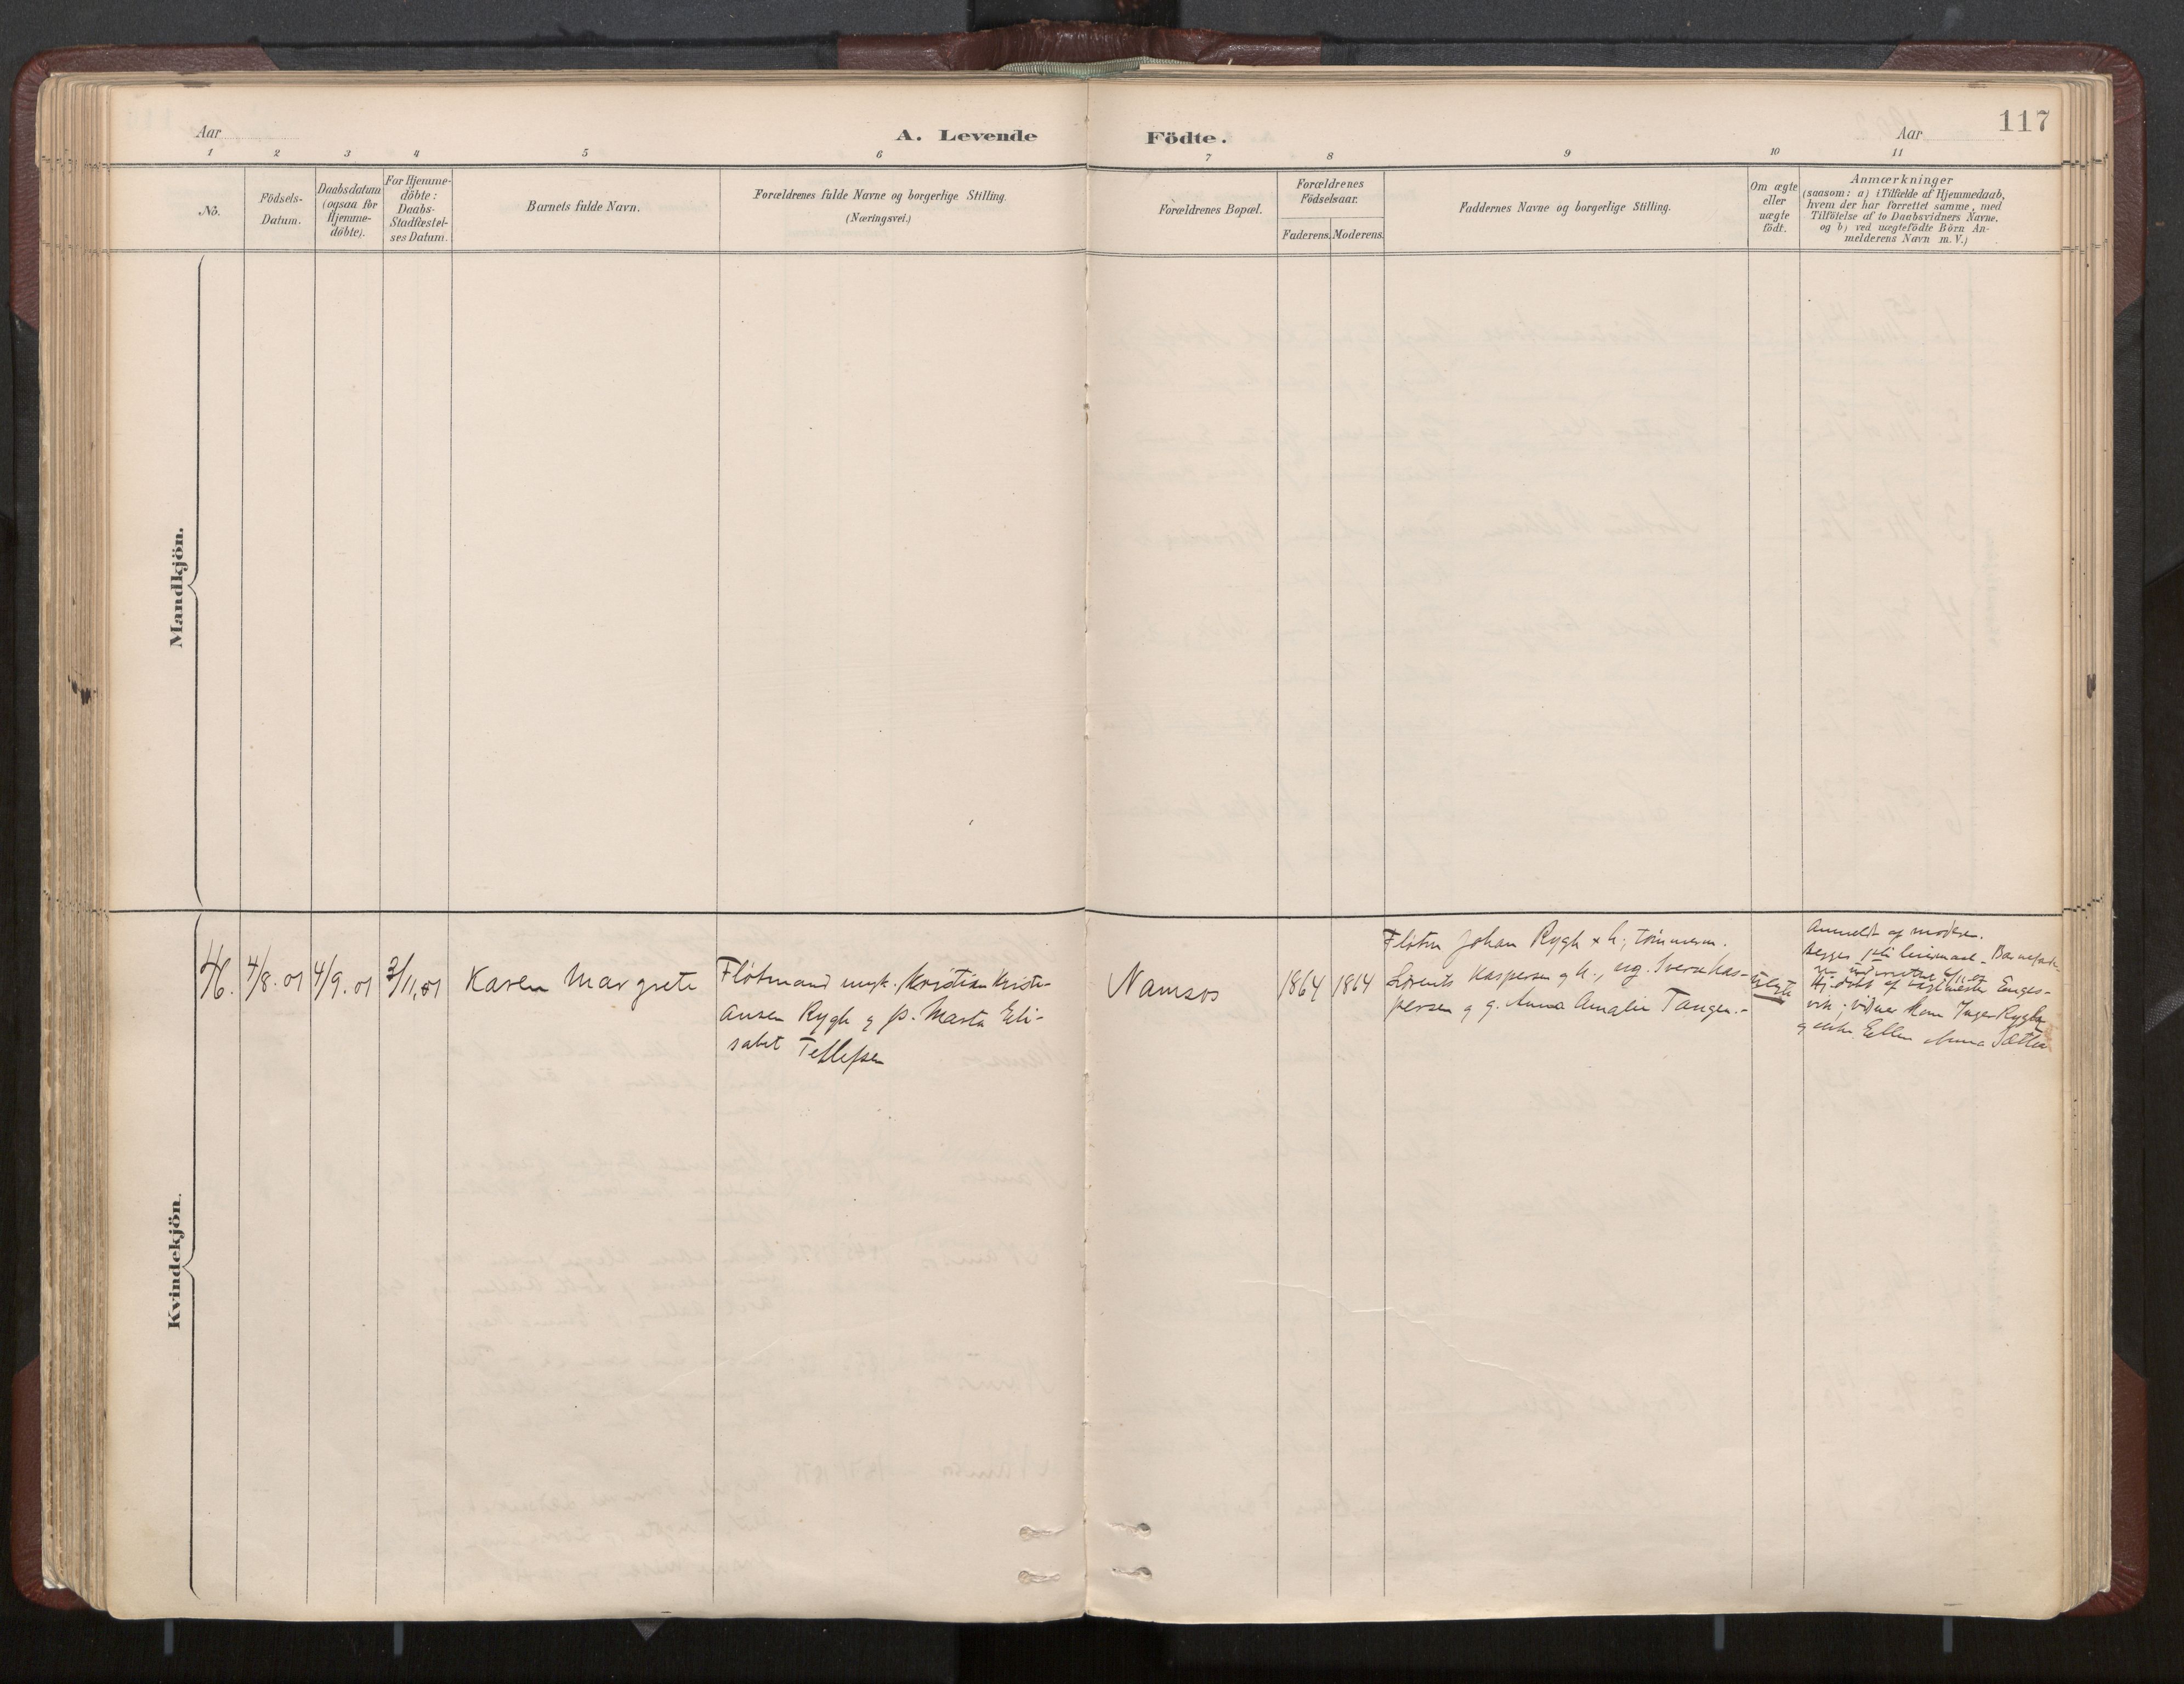 117
Aar
A. Levende Födte.
Aar
1 2 3 4 5 6 7 8 9 10 11
No.
Födsels-
Datum.
Daabsdatum
(ogsaa for
Hjemme-
döbte).
For Hjemme-
döbte:
Daabs-
Stadfæstel-
ses Datum.
Barnets fulde Navn.
Forældrenes fulde Navne og borgerlige Stilling.
(Næringsvei.)
Forældrenes Bopæl.
Forældrenes
Födselsaar.
Faderens. Moderens.
Faddernes Navne og borgerlige Stilling.
Om ægte
eller
uægte
födt.
Anmærkninger
(saasom: a) i Tilfælde af Hjemmedaab,
hvem der har forrettet samme, med
Tilföielse af to Daabsvidners Navne.
og b) ved uægtefödte Börn An-
melderens Navn m. V.)
Mandkjön.
Kvindekjön.
46.
4/8. 01
4/9. 01
3/11, 01
Karen Margrete
Fløtmand ungk. Kristian Kristi-
ansen Rygh g p. Marta Eli-
sabet Tellefsen
Namsos
1864
1864
Fløtm Johan Rygh & h; tømmerm.
Lorents Kaspersen g h., ug. Sverre Kas-
persen g g. Anna Amalie Tangen.-
uægte
Anmeldt af modere.
Begges leiermaal - Barnefade-
Hj-døbt af Enges-
vik; vidner kone Inger Rygh
g enke Ellen Anna Sæther